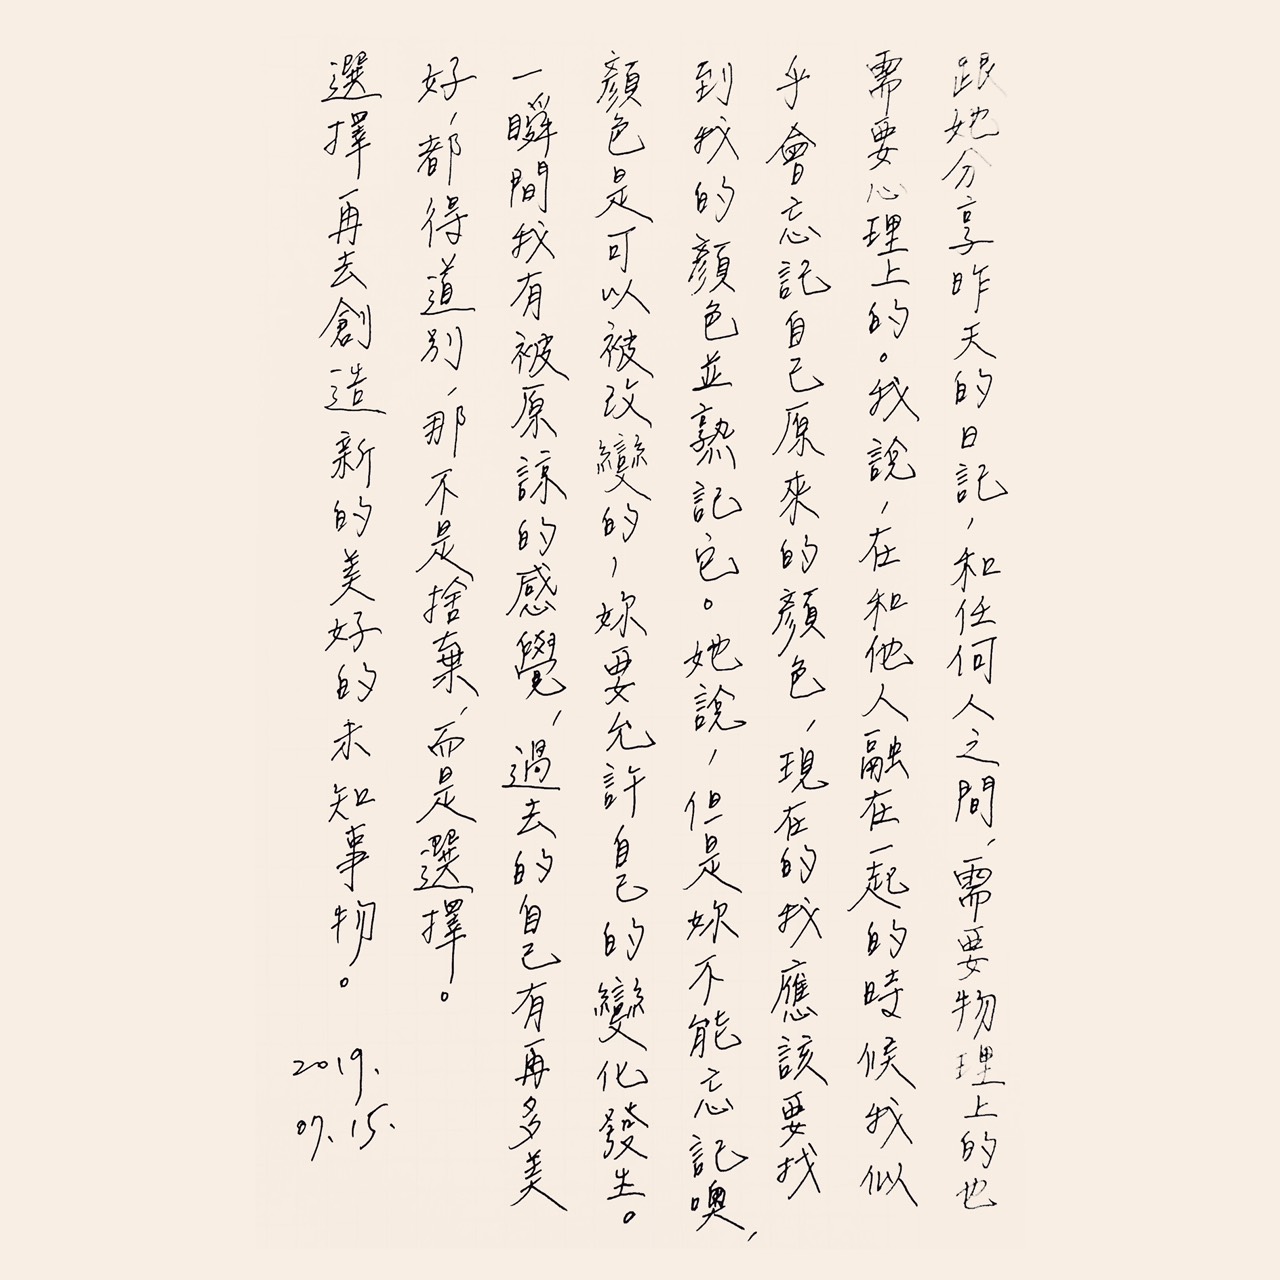 跟她分享昨天的日記，和任何人之間，需要物理上的也
需要心理上的。我說，在和他人融在一起的時候我似
乎會忘記自己原來的顏色，現在的我應該要找
到我的顏色並熟記它。她說，但是妳不能忘記噢，
顏色是可以被改變的，妳要允許自己的變化發生。
一瞬間我有被原諒的感覺，過去的自己有再多美
好，都得道別，那不是捨棄，而是選擇。
選擇再去創造新的美好的未知事物。
2019.
07.15.